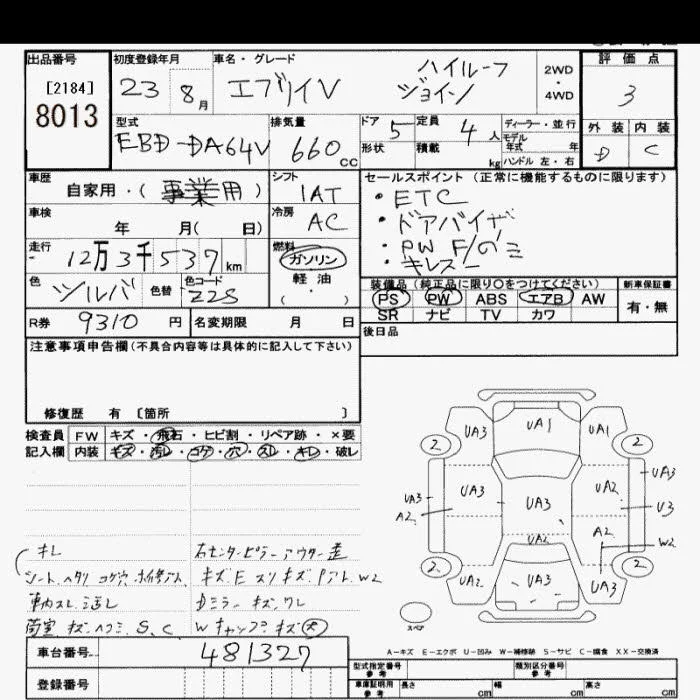 出品番号
[2184]
8013
初度登録年月
23 8月
車名・グレード
エブリイV
ハイルーフ
ジョイン
2WD
・
4WD
評価点
3
外装 内装
D C
型式
EBD-DA64V
排気量
660cc
ドア 5
形状
定員 4人
積載 kg
ディーラー・並行
モデル
年式 年
ハンドル 左・右
車歴
自家用・(事業用)
シフト
IAT
車検
年 月( 日)
冷房
AC
走行
12万3千537km
燃料
ガソリン
軽油
( ・ )
色
シルバ
色替
色コード
Z2S
R券 9310円
名変期限 月 日
セールスポイント(正常に機能するものに限ります)
・ETC
・ドアバイザ
・PW F/のミ
・キレスー
装備品(純正品に限り○をつけてください)
PS PW ABS エアB AW
SR ナビ TV カワ
新車保証書
有・無
後日品
注意事項申告欄(不具合内容等は具体的に記入して下さい)
修復歴 有 [箇所 ]
検査員
記入欄
FW キズ・飛石・ヒビ割・リペア跡・×要
内装 キズ・汚レ・コゲ・穴・スレ・キレ・破レ
キレ
シート ヘタリ コゲ穴
荷室 キズ ヘコミ S、C
右センターピラー アウター
キズE スリキズ W2
Dミラー キズ ワレ
Wキャップ キズ(大)
UA3
UA1
UA1
2
2
UA3
A2
UA3
UA3
UA2
UA3
U3
UA2
A2
W2
2
2
UA2
UA3
UA3
スペア
A-キズ E-エクボ U-凹み W-補修跡 S-サビ C-腐食 XX-交換済
車台番号 481327
登録番号
型式指定番号
参考
類別区分番号
参考
車庫証明用
参考
長さ cm
幅 cm
高さ cm